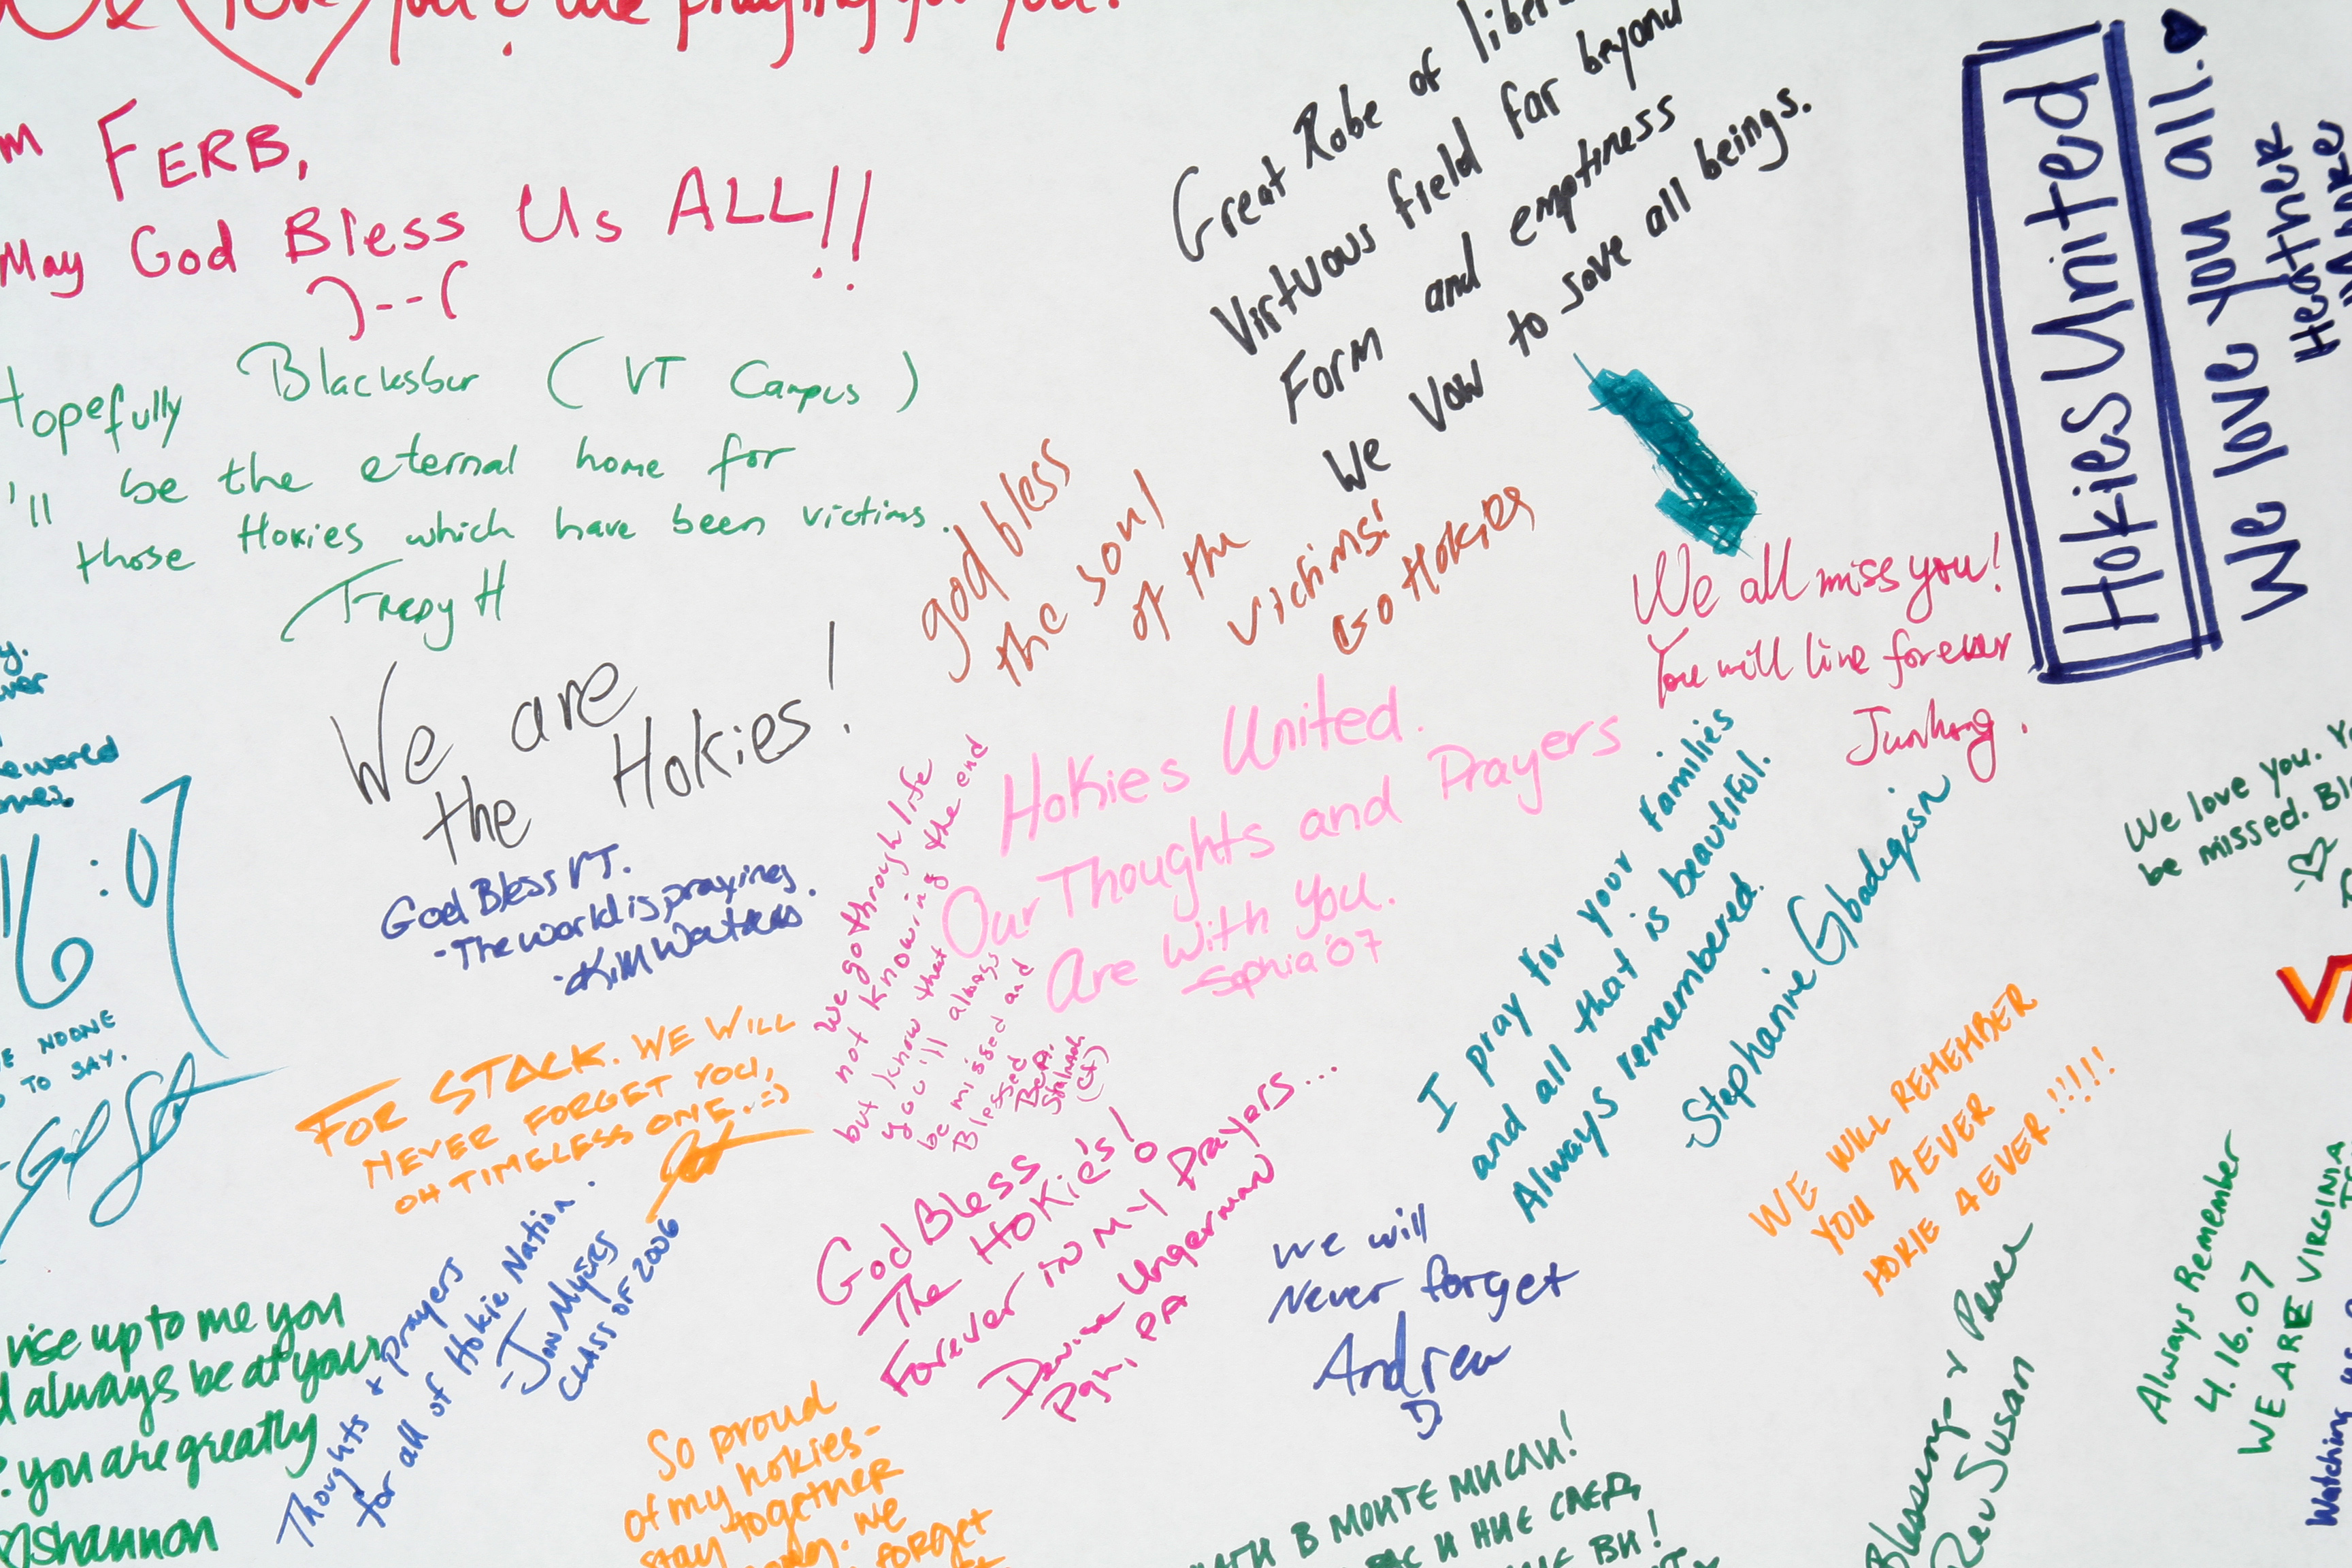 love you & are praying for you!
FERB,
May God Bless Us ALL!!
)--(
Hopefully Blacksbur (VT Campus)
'll be the eternal home for
those Hokies which have been victims.
Fredy H
Great Robe of
Virtuous field far beyond
Form and emptiness
We Vow to save all beings.
Hokies United
We love you all.
Heather
god bless
the soul
of the
victims!
Go Hokies
We all miss you!
You will live forever
Junhong.
We are
the Hokies!
God Bless VT.
-The world is praying.
-Kim Waters
Hokies United.
Our Thoughts and Prayers
Are with You.
Sophia '07
we go through life
not knowing the end
but know that
you'll always
be missed and
Blessed
(CT)
I pray for your families
and all that is beautiful.
Always remembered.
Stephanie Gbadegesin
We love you.
be missed.
16:07
NOONE
TO SAY.
FOR STACK. WE WILL
NEVER FORGET YOU,
OH TIMELESS ONE. :)
Thoughts + prayers
for all of Hokie Nation.
-Jon Myers
CLASS OF 2006
God Bless
The Hokie's!
Forever in my Prayers...
Denise Ungerman
Pgh, PA
we will
Never forget
Andrew
D.
WE WILL REMEMBER
YOU 4EVER
HOKIE 4EVER!!!!!
Always Remember
4.16.07
WE ARE VIRGINIA
Blessings & Peace
Rev Susan
rise up to me you
always be at your
you are greatly
Shannon
So proud
of my hokies-
stay together
we
forget
В МОИТЕ МИСЛИ!
С ВАС И НИЕ СЛЕД
ВИ!
Watching